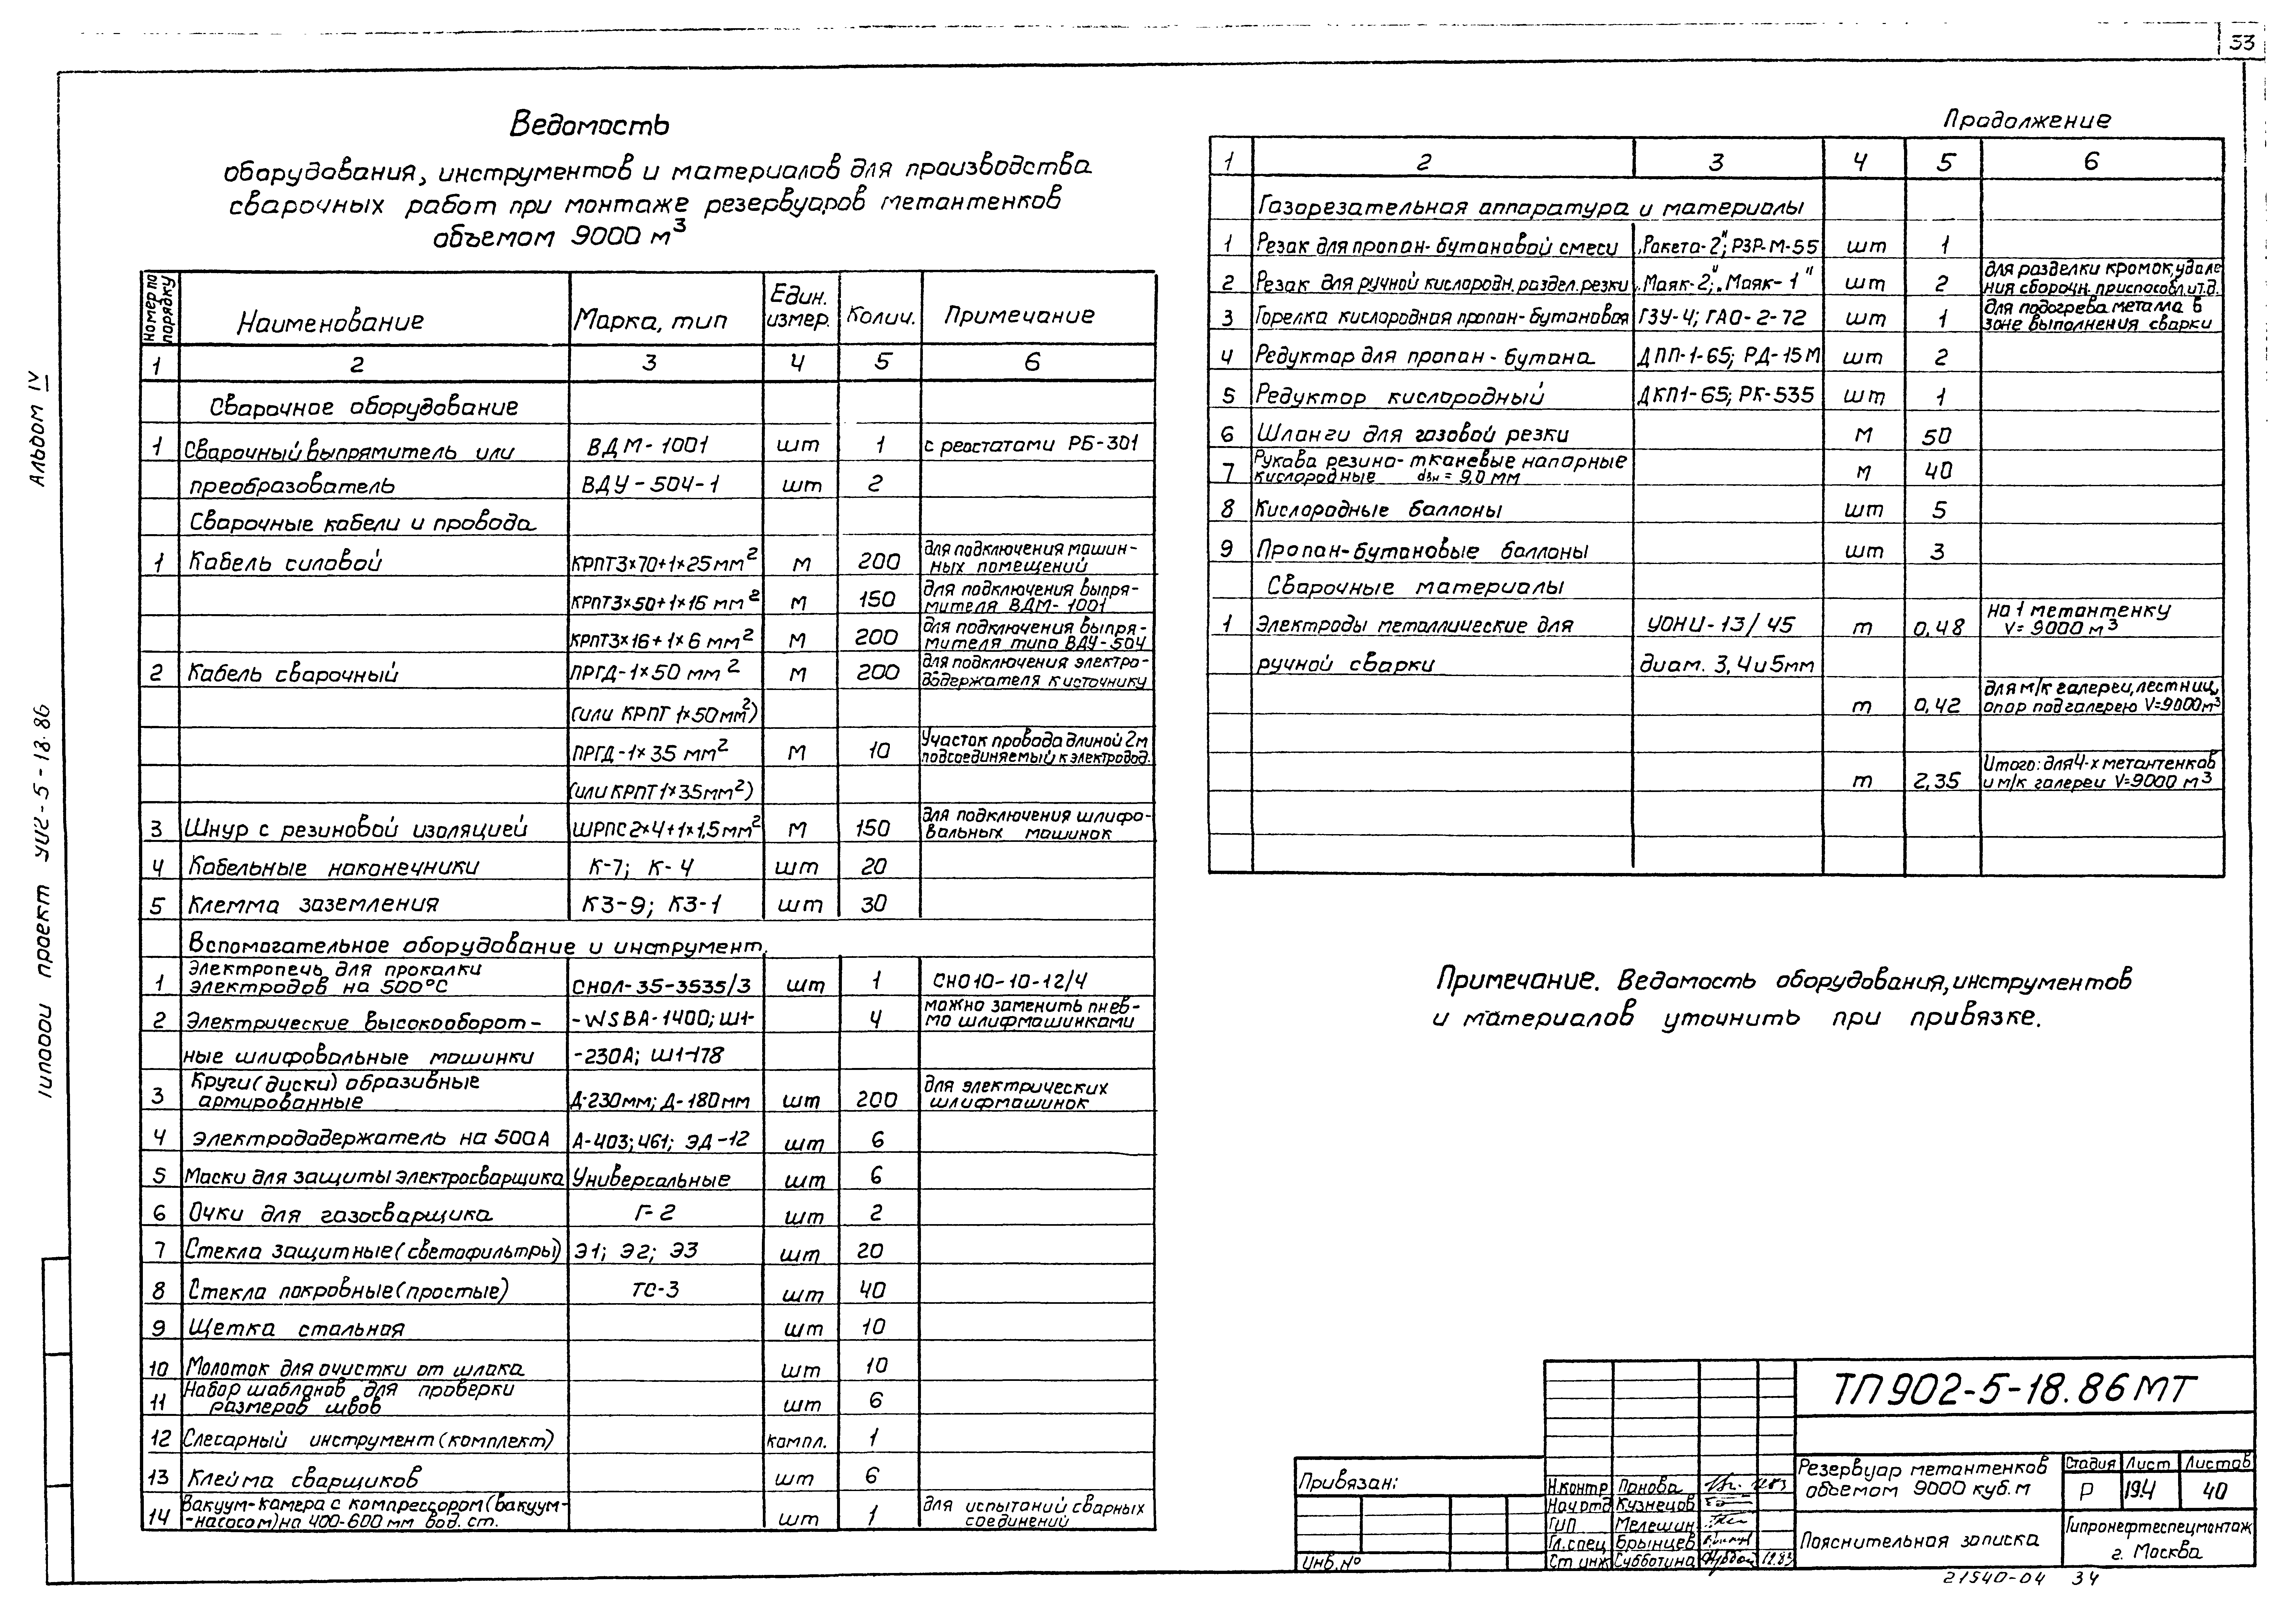 33
Альбом IV
проект 902-5-18.86
Ведомость
оборудования, инструментов и материалов для производства
сварочных работ при монтаже резервуаров метантенков
объемом 9000 м³
Номер по порядку | Наименование | Марка, тип | Един. измер. | Колич. | Примечание
1 | 2 | 3 | 4 | 5 | 6
Сварочное оборудование
1 | Сварочный выпрямитель или | ВДМ-1001 | шт | 1 | с реостатами РБ-301
преобразователь | ВДУ-504-1 | шт | 2
Сварочные кабели и провода
1 | Кабель силовой | КРПТ3×70+1×25мм² | м | 200 | для подключения машин-ных помещений
КРПТ3×50+1×16 мм² | м | 150 | для подключения выпря-мителя ВДМ-1001
КРПТ3×16+1×6 мм² | м | 200 | для подключения выпря-мителя типа ВДУ-504
2 | Кабель сварочный | ПРГД-1×50 мм² | м | 200 | для подключения электро-додержателя к источнику
(или КРПТ 1×50мм²)
ПРГД-1×35 мм² | м | 10 | Участок провода длиной 2м подсоединяемый к электродод.
(или КРПТ 1×35мм²)
3 | Шнур с резиновой изоляцией | ШРПС 2×4+1×1,5мм² | м | 150 | для подключения шлифо-вальных машинок
4 | Кабельные наконечники | К-7; К-4 | шт | 20
5 | Клемма заземления | КЗ-9; КЗ-1 | шт | 30
Вспомогательное оборудование и инструмент.
1 | Электропечь для прокалки электродов на 500°С | СНОЛ-35-3535/3 | шт | 1 | СНО10-10-12/4
2 | Электрические высокооборот- | -WSBA-1400; Ш1- | 4 | можно заменить пнев-мо шлифмашинками
ные шлифовальные машинки | -230А; Ш1-178
3 | Круги (диски) образивные армированные | Д-230мм; Д-180мм | шт | 200 | для электрических шлифмашинок
4 | Электрододержатель на 500А | А-403; 461; ЭД-12 | шт | 6
5 | Маски для защиты электросварщика | Универсальные | шт | 6
6 | Очки для газосварщика | Г-2 | шт | 2
7 | Стекла защитные (светофильтры) | Э1; Э2; Э3 | шт | 20
8 | Стекла покровные (простые) | ТС-3 | шт | 40
9 | Щетка стальная | шт | 10
10 | Молоток для очистки от шлака | шт | 10
11 | Набор шаблонов для проверки размеров швов | шт | 6
12 | Слесарный инструмент (комплект) | компл. | 1
13 | Клейма сварщиков | шт | 6
14 | Вакуум-камера с компрессором (вакуум--насосом) на 400-600 мм вод. ст. | шт | 1 | для испытаний сварных соединений
Продолжение
1 | 2 | 3 | 4 | 5 | 6
Газорезательная аппаратура и материалы
1 | Резак для пропан-бутановой смеси | „Ракета-2"; РЗР-М-55 | шт | 1
2 | Резак для ручной кислородн. раздел. резки | „Маяк-2"; „Маяк-1" | шт | 2 | для разделки кромок, удале ния сборочн. приспособл. и т.д.
3 | Горелка кислородная пропан-бутановая | ГЗУ-4; ГАО-2-72 | шт | 1 | для подогрева металла в зоне выполнения сварки
4 | Редуктор для пропан-бутана | ДПП-1-65; РД-15М | шт | 2
5 | Редуктор кислородный | ДКП1-65; РК-535 | шт | 1
6 | Шланги для газовой резки | м | 50
7 | Рукава резино-тканевые напорные кислородные dвн = 9,0 мм | м | 40
8 | Кислородные баллоны | шт | 5
9 | Пропан-бутановые баллоны | шт | 3
Сварочные материалы
1 | Электроды металлические для | УОНИ-13/45 | т | 0,48 | на 1 метантенку V=9000 м³
ручной сварки | диам. 3, 4 и 5мм
т | 0,42 | для м/к галереи, лестниц, опор под галерею V=9000м³
т | 2,35 | Итого: для 4-х метантенков и м/к галереи V=9000 м³
Примечание. Ведомость оборудования, инструментов
и материалов уточнить при привязке.
ТП 902-5-18.86 МТ
Привязан:
Инв.№
Н.контр Панова 12.83
Нач отд Кузнецов
ГИП Мелешин
Гл.спец Брынцев
Ст инж Субботина 12.83
Резервуар метантенков
объемом 9000 куб.м
Стадия Лист Листов
Р 19.4 40
Пояснительная записка
Гипронефтеспецмонтаж
г. Москва
21540-04 34